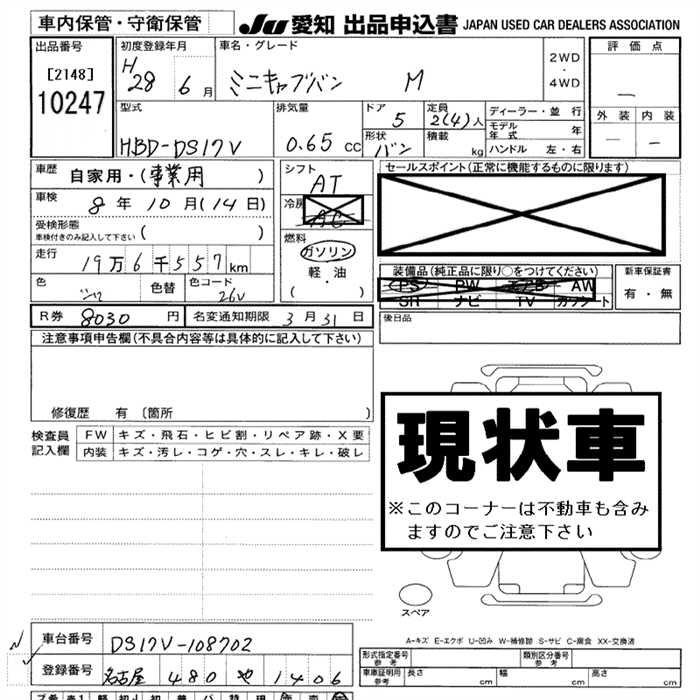 車内保管・守衛保管
JU 愛知 出品申込書 JAPAN USED CAR DEALERS ASSOCIATION
出品番号
[2148]
10247
初度登録年月
H 28 6 月
車名・グレード
ミニキャブバン M
2WD
・
4WD
評価点
—
外装 内装
— —
型式
HBD-DS17V
排気量
0.65 CC
ドア
5
定員
2(4)人
形状
バン
積載
kg
ディーラー・並行
モデル年式 年
ハンドル 左・右
車歴
自家用・(事業用 )
車検
8 年 10 月(14 日)
受検形態
車検付きのみ記入して下さい ( )
走行
19万6千557km
色
色替
色コード
26V
シフト
AT
冷房
AC
燃料
ガソリン
軽・油
( ・ )
セールスポイント(正常に機能するものに限ります)
装備品(純正品に限り○をつけてください)
PS PW エアB AW
SR ナビ TV カワシート
新車保証書
有・無
R券 8030 円 名変通知期限 3 月 31 日
後日品
注意事項申告欄(不具合内容等は具体的に記入して下さい)
修復歴 有 〔箇所 〕
検査員
記入欄
FW キズ・飛石・ヒビ割・リペア跡・X要
内装 キズ・汚レ・コゲ・穴・スレ・キレ・破レ
現状車
※このコーナーは不動車も含み
ますのでご注意下さい
スペア
A-キズ E-エクボ U-凹み W-補修跡 S-サビ C-腐食 XX-交換済
車台番号 DS17V-108702
登録番号 名古屋 480 や 1406
形式指定番号
参考
類別区分番号
参考
車庫証明用
参考
長さ cm 幅 cm 高さ cm